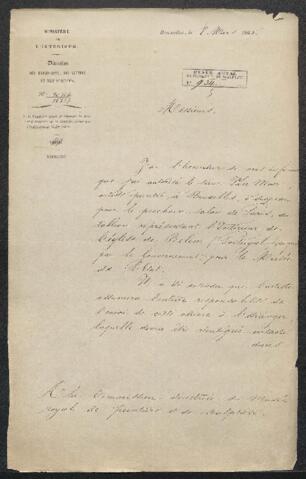 MINISTÈRE
DE
L'INTÉRIEUR.
Direction
DES BEAUX-ARTS, DES LETTRES
ET DES SCIENCES.
N°
Bruxelles, le 8 Mars 186
MUSÉE ROYAL
N° 934
Messieurs,
J'ai l'honneur de vous informer
que j'ai autorisé le sieur Van Moer,
artiste peintre, à Bruxelles, à disposer
pour le prochain salon de Paris, du
tableau représentant l'Intérieur de
l'église de Belem, Portugal, acquis
par le Gouvernement pour le Musée
de l'Etat.
Il a été entendu que l'artiste
assumera l'entière responsabilité de
l'envoi de cette œuvre à l'étranger
laquelle devra être réintégrée
dans
A la Commission directrice du Musée
royal de peinture et de sculpture.